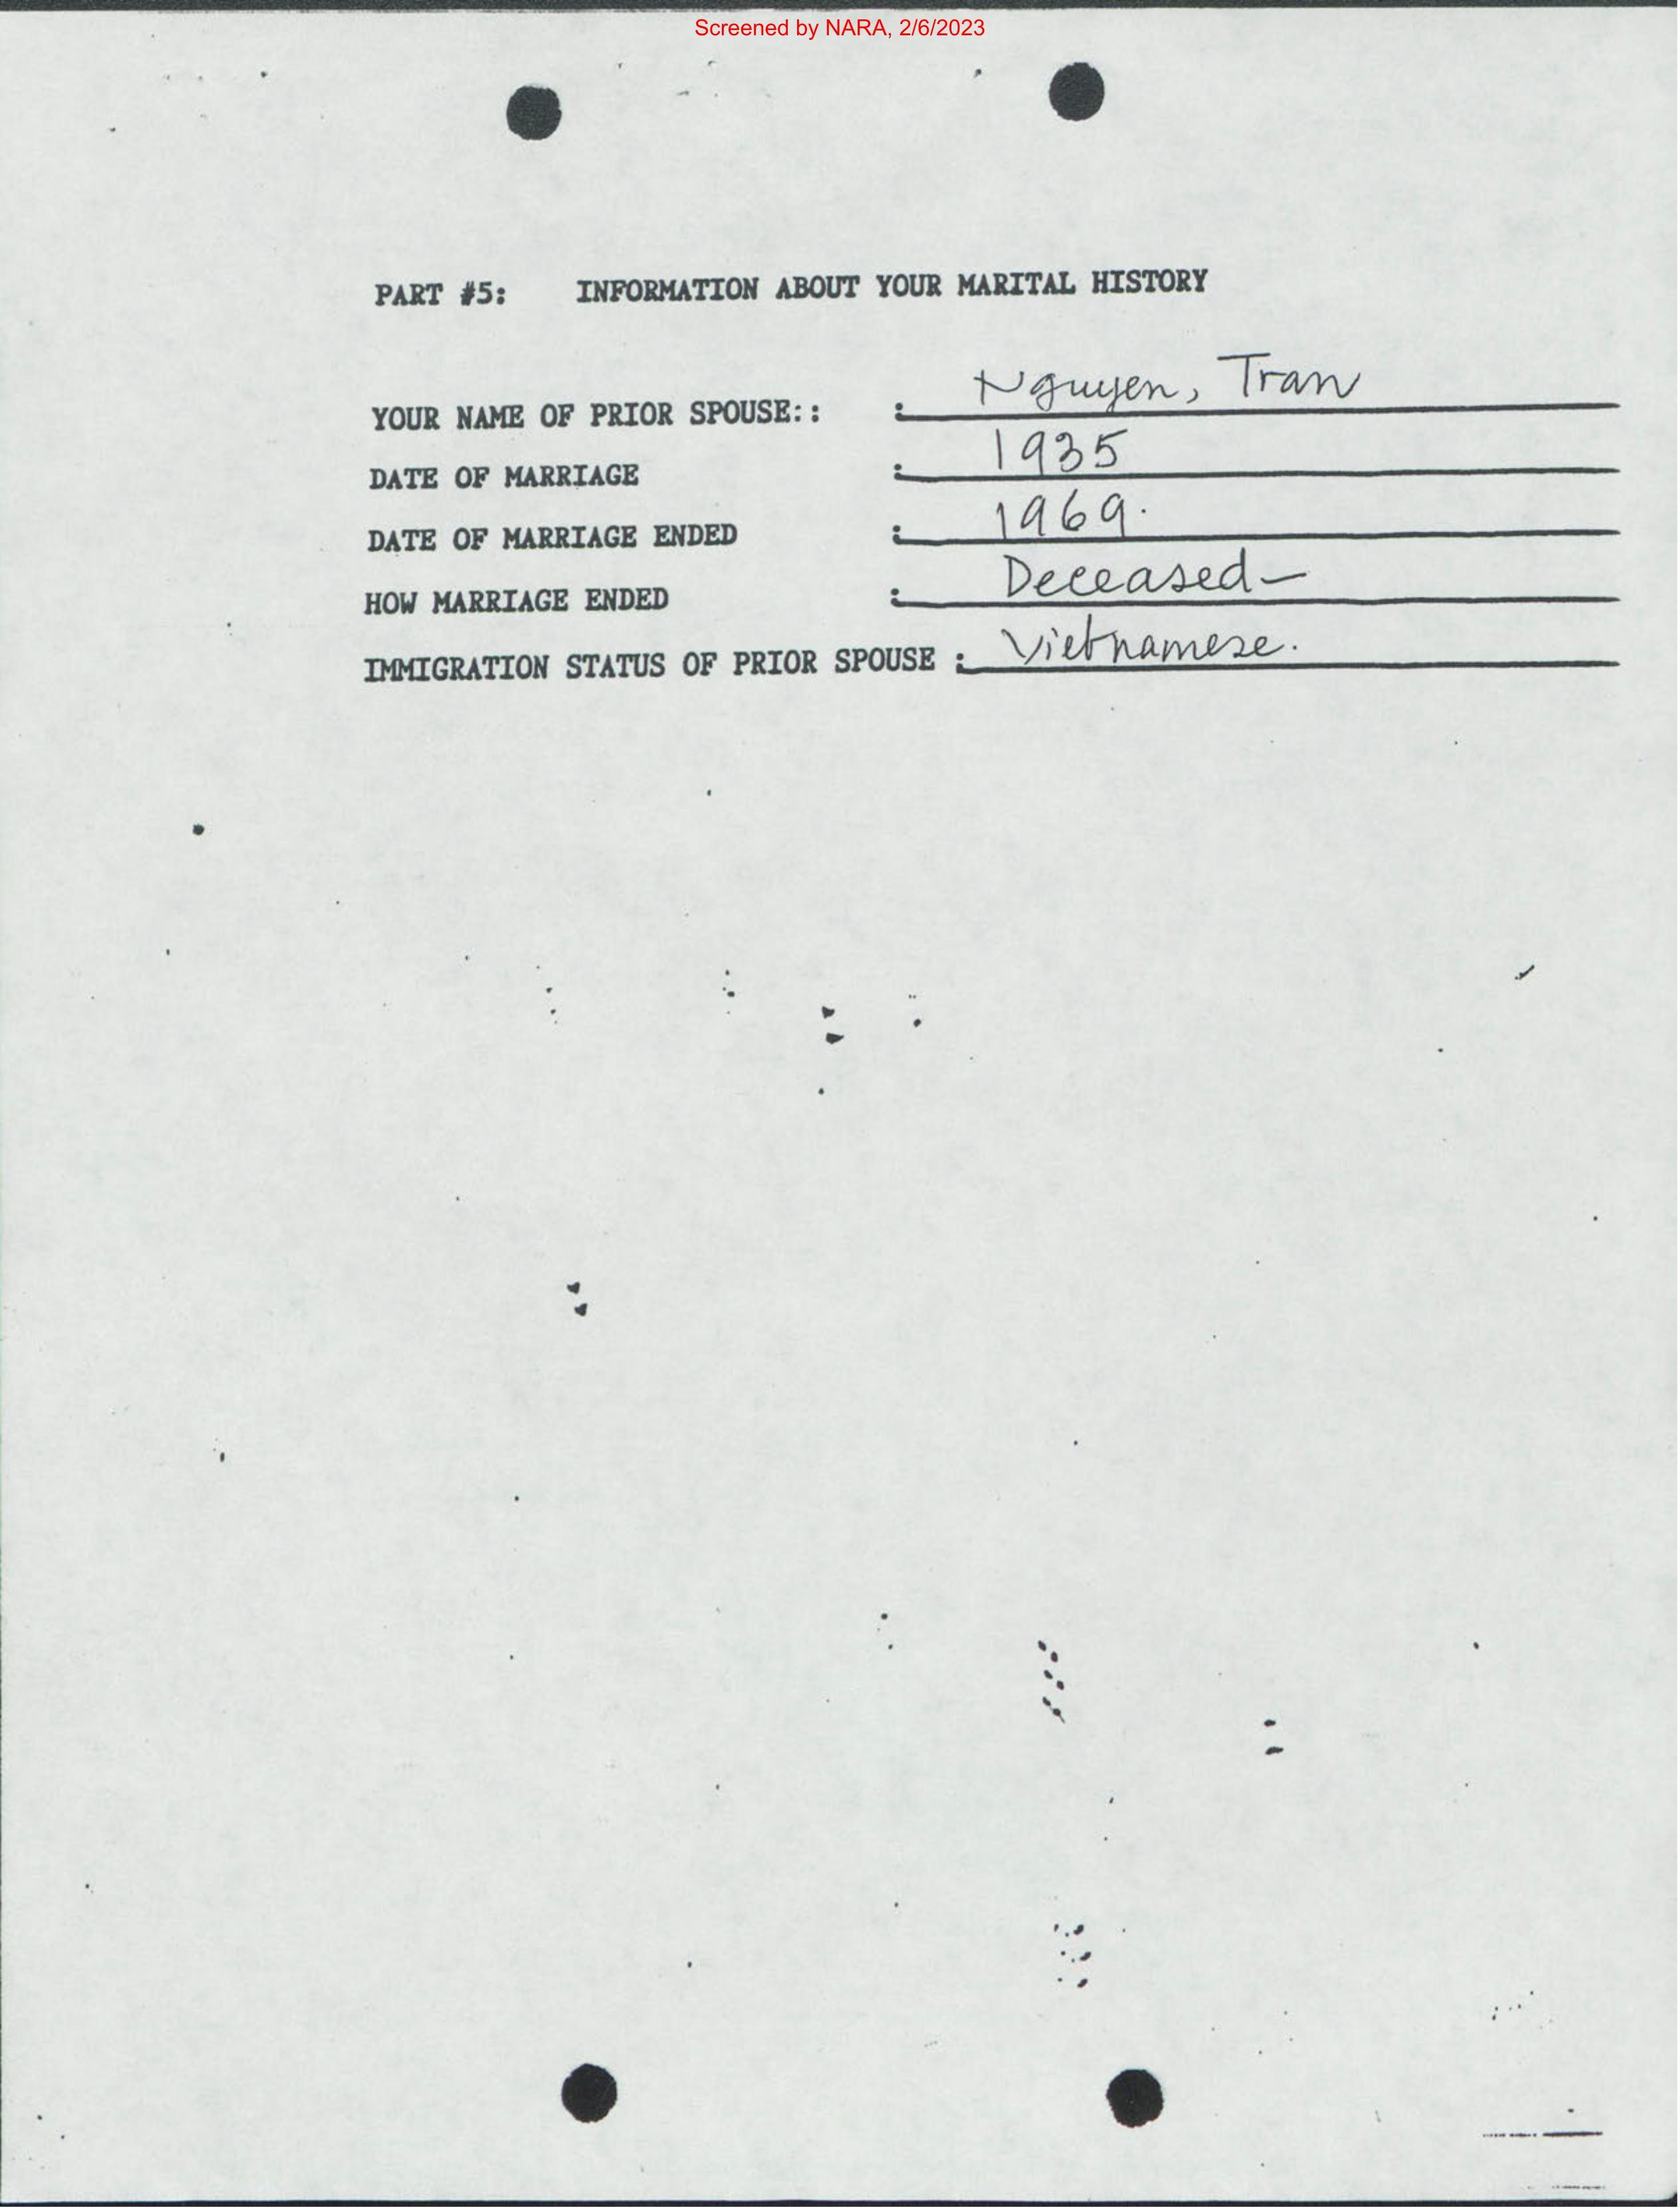 Screened by NARA, 2/6/2023
PART #5: INFORMATION ABOUT YOUR MARITAL HISTORY
YOUR NAME OF PRIOR SPOUSE:: : Nguyen, Tran
DATE OF MARRIAGE : 1935
DATE OF MARRIAGE ENDED : 1969.
HOW MARRIAGE ENDED : Deceased-
IMMIGRATION STATUS OF PRIOR SPOUSE : Vietnamese.